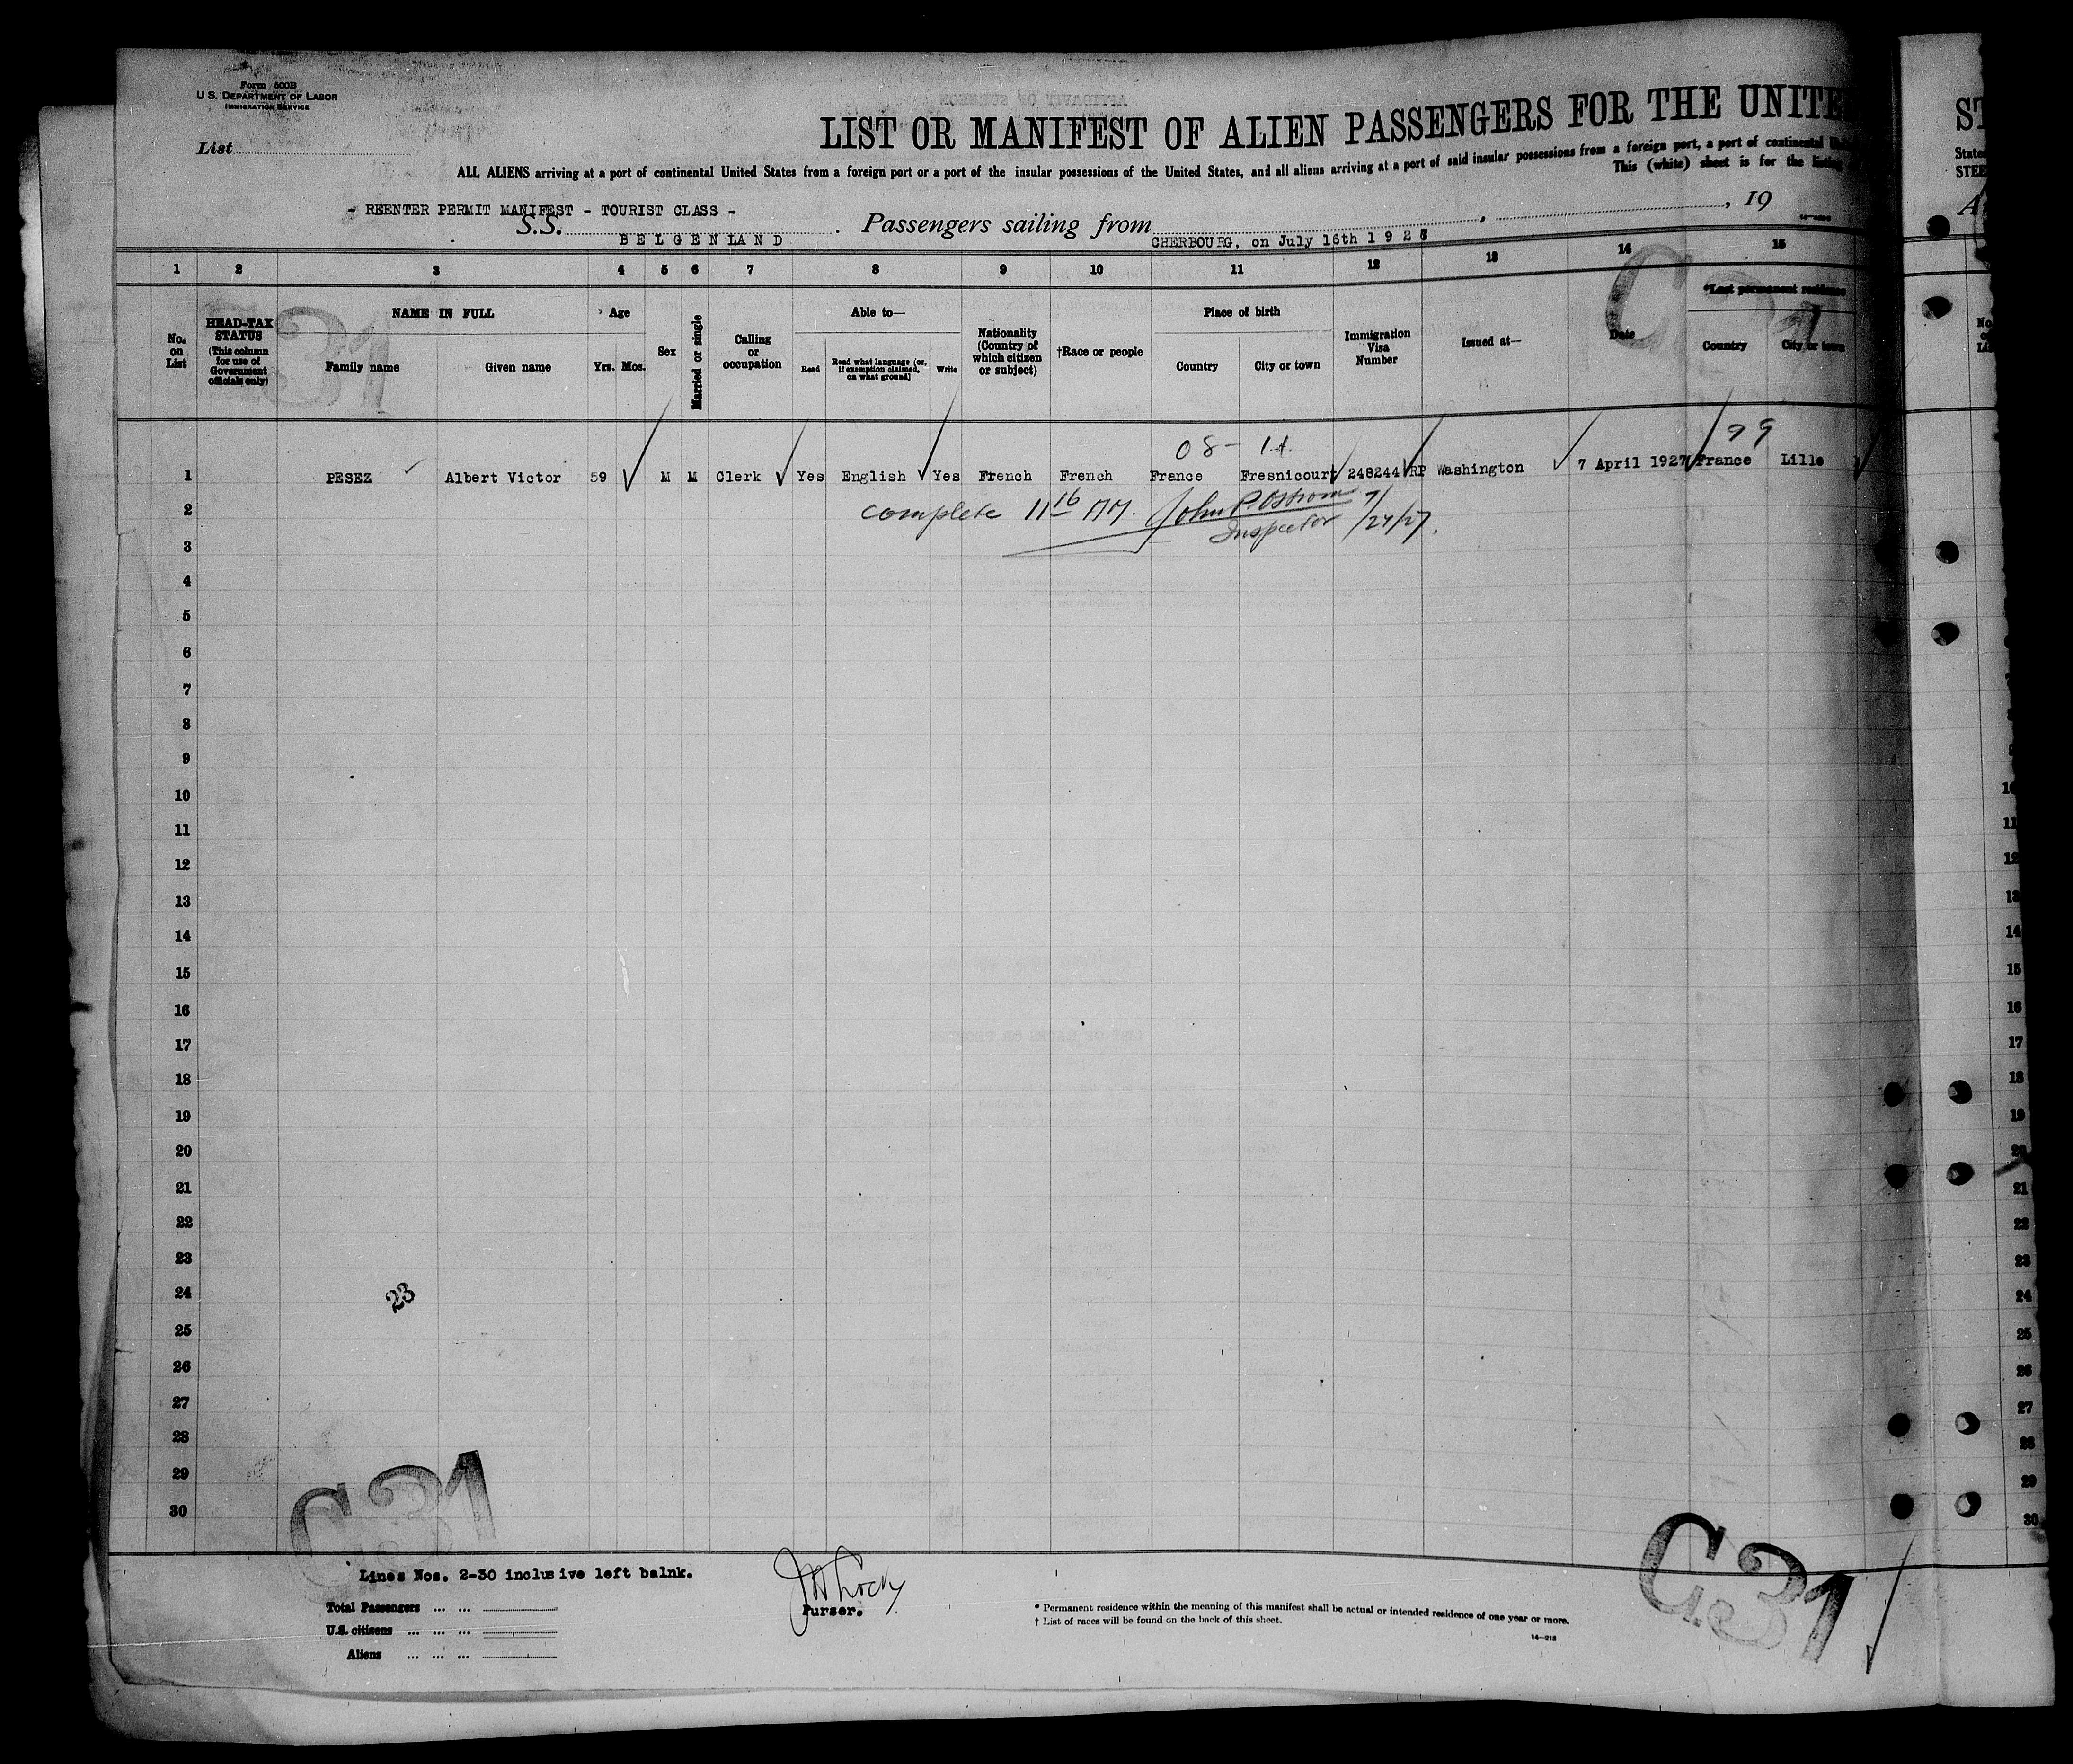 Form 500B
U.S. DEPARTMENT OF LABOR
IMMIGRATION SERVICE
List
LIST OR MANIFEST OF ALIEN PASSENGERS FOR THE UNITE
ALL ALIENS arriving at a port of continental United States from a foreign port or a port of the insular possessions of the United States, and all aliens arriving at a port of said insular possessions from a foreign port, a port of continental
This (white) sheet is for the listing
- REENTER PERMIT MANIFEST - TOURIST CLASS -
S.S. BELGENLAND. Passengers sailing from CHERBOURG, on July 16th 192 , 19
1 2 3 4 5 6 7 8 9 10 11 12 13 14 15
No. on List
HEAD-TAX STATUS (This column for use of Government officials only)
NAME IN FULL
Family name Given name
Age
Yrs. Mos.
Sex
Married or single
Calling or occupation
Able to—
Read
Read what language [or, if exemption claimed, on what ground]
Write
Nationality (Country of which citizen or subject)
†Race or people
Place of birth
Country City or town
Immigration Visa Number
Issued at—
Date
*Last permanent residence
Country City or town
08- 14. 99
1 PESEZ Albert Victor 59 M M Clerk Yes English Yes French French France Fresnicourt 248244 RP Washington 7 April 1927 France Lille
complete 11 16 AM. John P Ostrom 7/24/27.
Inspector
2
3
4
5
6
7
8
9
10
11
12
13
14
15
16
17
18
19
20
21
22
23
24
23
25
26
27
28
29
30
G31
G31
Lines Nos. 2-30 inclusive left balnk.
Purser.
Total Passengers ... ...
U.S. citizens ... ... ...
Aliens ... ... ...
* Permanent residence within the meaning of this manifest shall be actual or intended residence of one year or more.
† List of races will be found on the back of this sheet.
14-213